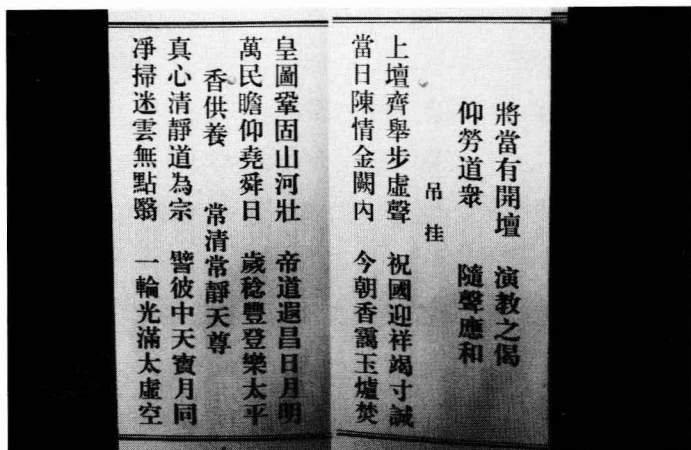 將當有開壇　演教之偈
仰勞道衆　隨聲應和
吊挂
上壇齊舉步虛聲　祝國迎祥竭寸誠
當日陳情金闕內　今朝香靄玉爐焚
皇圖鞏固山河壯　帝道遐昌日月明
萬民瞻仰堯舜日　歲稔豐登樂太平
香供養　常清常靜天尊
真心清靜道為宗　譬彼中天寶月同
凈掃迷雲無點翳　一輪光滿太虛空